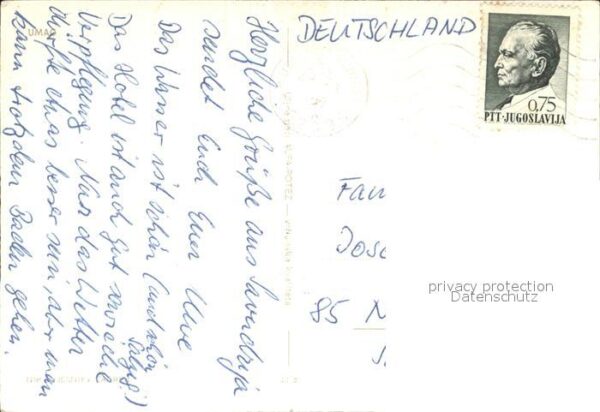 UMAG
Herzliche Grüße aus Savudrija
sendet Euch Euer Uwe
Das Wasser ist schön (und schön
salzig!)
Das Hotel ist auch gut sowie die
Verpflegung. Nur das Wetter
dürfte etwas besser sein, aber man
kann trotzdem Baden gehen.
DEUTSCHLAND
0,75
PTT-JUGOSLAVIJA
Fam
Jos
85 N
privacy protection
Datenschutz